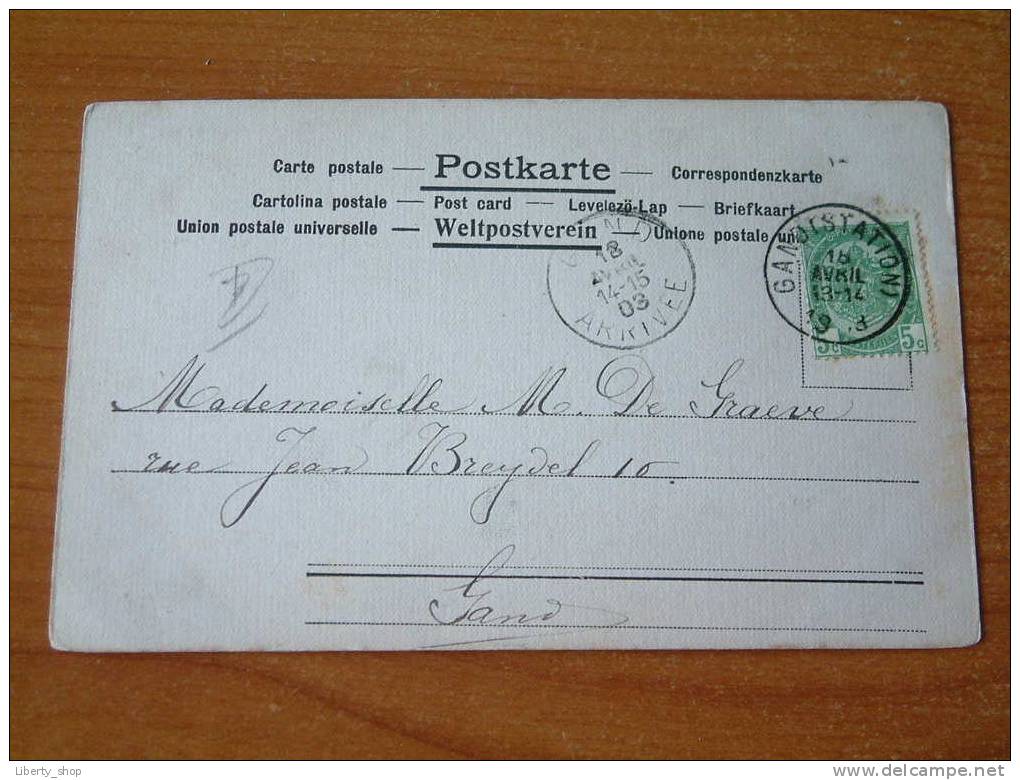 Carte postale — Postkarte — Correspondenzkarte
Cartolina postale — Post card — Levelezö-Lap — Briefkaart
Union postale universelle — Weltpostverein — Unione postale un
18
AVRIL
14-15
03
ARRIVEE
GAND(STATION)
18
AVRIL
13-14
5c 5c
Mademoiselle M. De Graeve
rue Jean Breydel 10.
Gand
Liberty_shop
delcampe.net